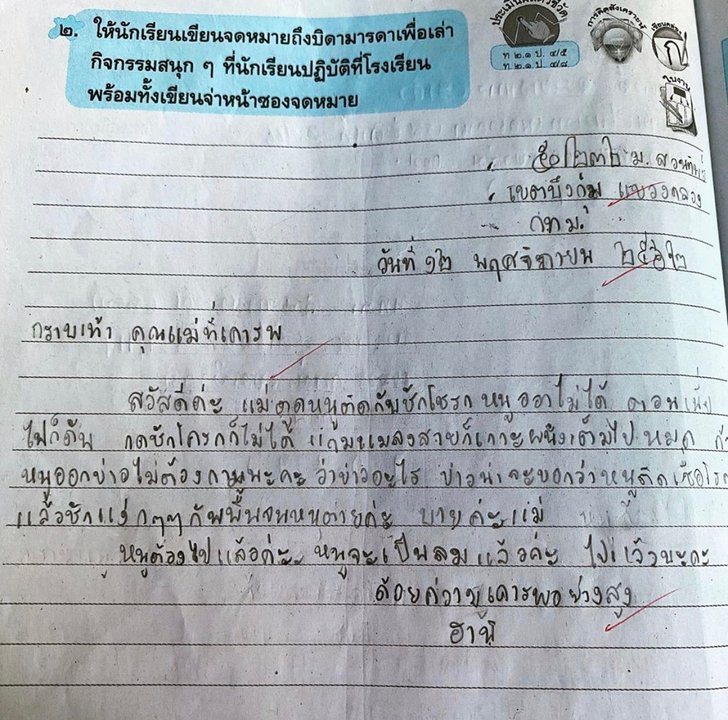 ๒. ให้นักเรียนเขียนจดหมายถึงบิดามารดาเพื่อเล่า
กิจกรรมสนุก ๆ ที่นักเรียนปฏิบัติที่โรงเรียน
พร้อมทั้งเขียนจ่าหน้าซองจดหมาย
ประเมินผลตัวชี้วัด
ท ๒.๑ ป. ๔/๕
ท ๒.๑ ป. ๔/๘
การคิดสังเคราะห์
ใบงาน
๕๐/๒๓๒ ม.
เขตบึงกุ่ม แขวงคลอง
กทม.
วันที่ ๑๒ พฤศจิกายน ๒๕๖๒
กราบเท้า คุณแม่ที่เคารพ
สวัสดีค่ะ แม่ตูดหนูติดกับชักโครก หนูออกไม่ได้
ไฟก็ดับ กดชักโครกก็ไม่ได้ แถมแมลงสาบก็เกาะผนังเต็มไปหมด
หนูออกข่าวไม่ต้องถามนะคะ ว่าข่าวอะไร ข่าวน่าจะบอกว่าหนูติดเชื้อโรค
แล้วชักแหง่กๆๆ กับพื้นจนหนูตายค่ะ บายค่ะแม่
หนูต้องไปแล้วค่ะ หนูจะเป็นลมแล้วค่ะ ไปแล้วนะคะ
ด้วยความเคารพอย่างสูง
ฮานิ